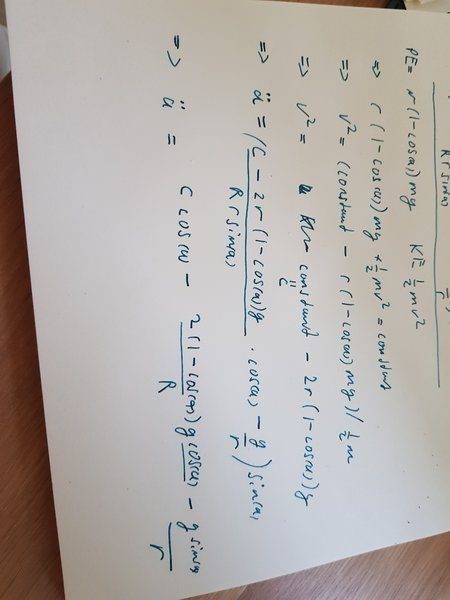 R r sin(a)
r
PE = r(1-cos(a))mg KE = ½mv²
=> r(1-cos(a))mg + ½mv² = constant
=> v² = (constant - r(1-cos(a))mg)/½m
=> v² = constant - 2r(1-cos(a))g
C
=> ä = (C - 2r(1-cos(a))g / R r sin(a) · cos(a) - g/r) sin(a)
=> ä = C cos(a) - 2(1-cos(a))g cos(a) / R - g sin(a) / r